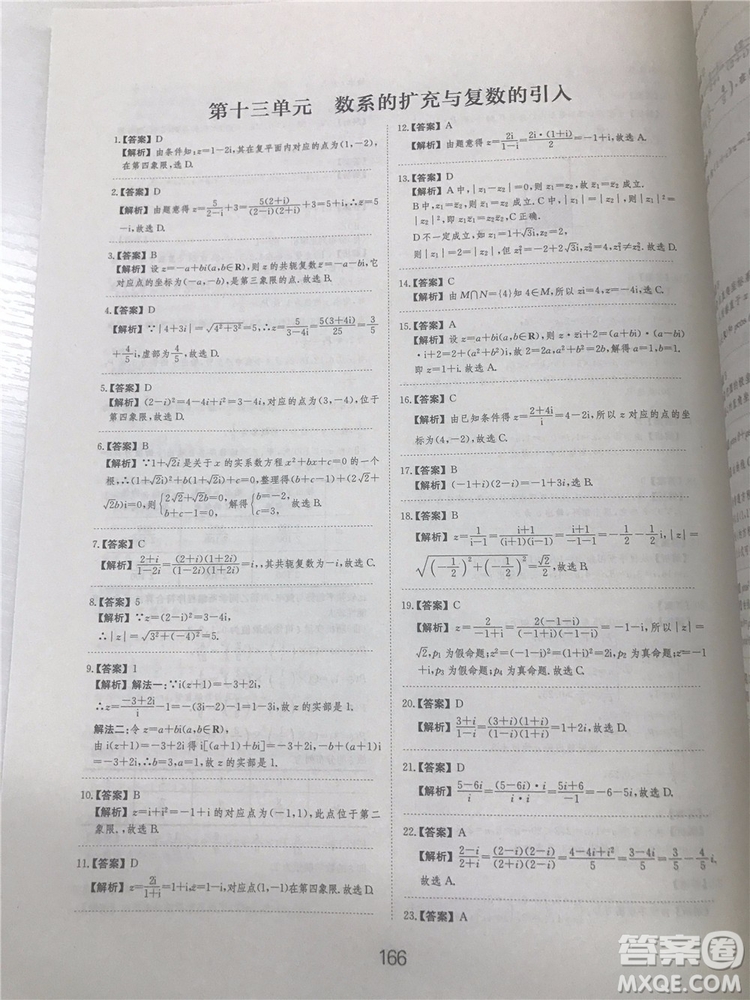 第十三单元 数系的扩充与复数的引入
1.【答案】D
【解析】由条件知:z=1-2i,其在复平面内对应的点为(1,-2),
在第四象限,选D.
2.【答案】D
【解析】由题意得z=5/(2-i)+3=5(2+i)/((2-i)(2+i))+3=5+i,∴z=5
-i,故选D.
3.【答案】B
【解析】设z=-a+bi(a,b∈R),则z的共轭复数z=-a-bi,它
对应点的坐标为(-a,-b),是第三象限的点.故选B.
4.【答案】D
【解析】∵|4+3i|=√(4²+3²)=5,∴z=5/(3-4i)=5(3+4i)/25=3/5
+4/5i,虚部为4/5,故选D.
5.【答案】D
【解析】(2-i)²=4-4i+i²=3-4i,对应的点为(3,-4),位于
第四象限,故选D.
6.【答案】B
【解析】∵1+√2i是关于x的实系数方程x²+bx+c=0的一个
根,∴(1+√2i)²+b(1+√2i)+c=0,整理得(2√2+
√2b)i+(b+c-1)=0,则{2√2+√2b=0 b+c-1=0,解得{b=-2, c=3,故选B.
7.【答案】C
【解析】(2+i)/(1-2i)=(2+i)(1+2i)/((1-2i)(1+2i))=i,,其共轭复数为-i,故选C.
8.【答案】5
【解析】∵z=(2-i)²=3-4i,
∴|z|=√(3²+(-4)²)=5.
9.【答案】1
【解析】解法一:∵i(z+1)=-3+2i,
∴z=(-3+2i)/i-1=-(3i-2)-1=1-3i,故z的实部是1.
解法二:令z=a+bi(a,b∈R),
由i(z+1)=-3+2i得i[(a+1)+bi]=-3+2i,
-b+(a+1)i=-3+2i,b=3,a=1,故z的实部是1.
10.【答案】B
【解析】z=i+i²=-1+i的对应点为(-1,1),此点位于第二
象限.,故选B.
11.【答案】D
【解析】z=2i/(1+i)=1+i,z=1-i,对应点在第四象限.故选D.
12.【答案】A
【解析】由题意得z=2i/(1-i)=2i·(1+i)/2=-1+i,故选A.
13.【答案】D
【解析】A中,|z₁-z₂|=0,则z₁=z₂成立.
B中,z₁=z₂,则z₁=z₂成立.C中,|z₁|=|z₂|,则|z₁|²=
|z₂|²,即z₁z₁=z₂z₂,C正确.
D不一定成立,如z₁=1+√3i,z₂=2,
则|z₁|=2=|z₂|,z₁²=-2+2√3i,z₂²=4,z₁²≠z₂².
14.【答案】C
【解析】由M∩N={4}知4∈M,所以zi=4,z=-4i,故选C.
15.【答案】A
【解析】设z=a+bi(a,b∈R),则z·zi+2=(a+bi)(a-bi)
·i+2=2+(a²+b²)i=2a+2bi,故2=2a,a²+b²=2b,解得
a=1,b=1.即z=1+i.故选A.
16.【答案】C
【解析】由已知条件得z=(2+4i)/i=4-2i,所以z对应的点的坐
标为(4,-2),故选C.
17.【答案】B
【解析】(-1+i)(2-i)=-1+3i,故选B.
18.【答案】B
【解析】z=1/(i-1)=(i+1)/((i+1)(i-1))=(i+1)/(i²-1)=-1/2-1/2i,|z|=
√((-1/2)²+(-1/2)²)=√2/2,故选B.
19.【答案】C
【解析】z=2/(-1+i)=2(-1-i)/((-1+i)(-1-i))=-1-i,所以|z|=
√2,p₁为假命题;z²=(-1-i)²=(1+i)²=2i,p₂为真命题;z=
-1+i,p₃为假命题;p₄为真命题.故选C.
20.【答案】D
【解析】(3+i)/(1-i)=(3+i)(1+i)/((1-i)(1+i))=1+2i,故选D.
21.【答案】D
【解析】(5-6i)/i=(5-6i)·i/(i·i)=(5i+6)/(-1)=-6-5i,故选D.
22.【答案】A
【解析】(2-i)/(2+i)=(2-i)(2-i)/((2+i)(2-i))=(4-4i+i²)/5=(3-4i)/5=3/5-4/5i,
故选A.
23.【答案】A
166
答案圈
MXQE.COM